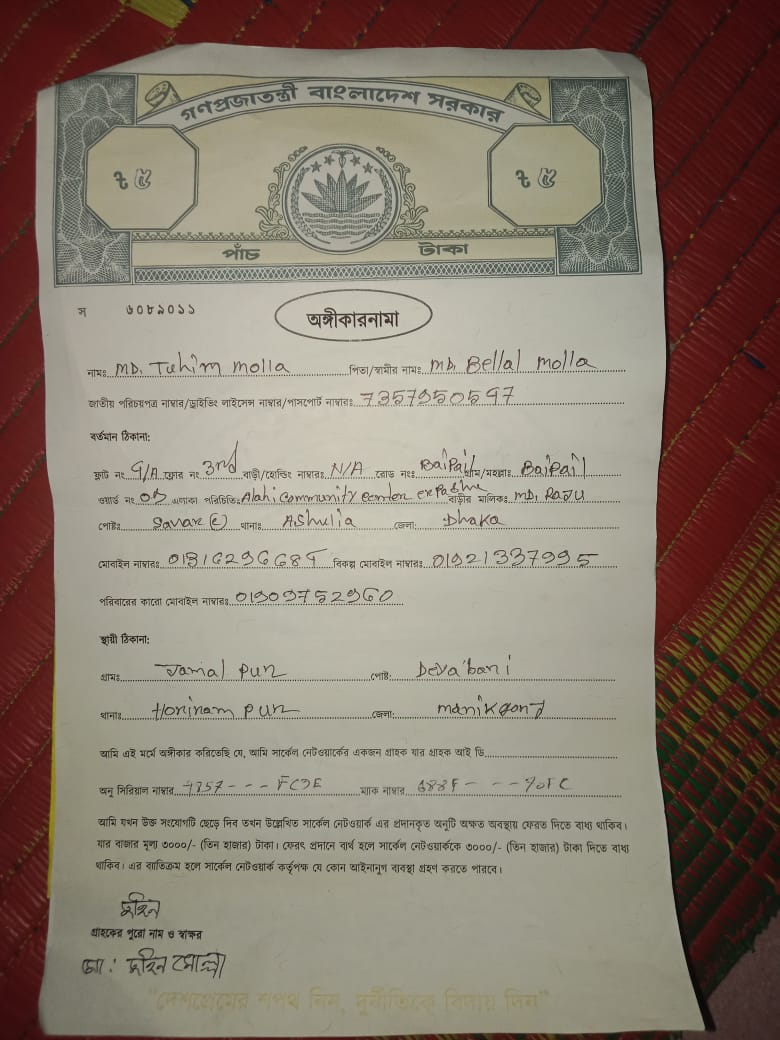 গণপ্রজাতন্ত্রী বাংলাদেশ সরকার
৳ ৫ ৳ ৫
পাঁচ টাকা
স ৬০৮৯০১১
অঙ্গীকারনামা
নামঃ MD. Tuhim Molla পিতা/স্বামীর নামঃ MD. Bellal Molla
জাতীয় পরিচয়পত্র নাম্বার/ড্রাইভিং লাইসেন্স নাম্বার/পাসপোর্ট নাম্বারঃ 7357950597
বর্তমান ঠিকানা:
ফ্লাট নং G/A ফ্লোর নং 3rd বাড়ী/হোল্ডিং নাম্বারঃ N/A রোড নংঃ BaiPail গ্রাম/মহল্লাঃ BaiPail
ওয়ার্ড নং এলাকা পরিচিতিঃ Alahi Community বাড়ীর মালিকঃ MD. Raju
পোষ্টঃ Savar থানাঃ Ashulia জেলা: Dhaka
মোবাইল নাম্বারঃ বিকল্প মোবাইল নাম্বারঃ 01921337995
পরিবারের কারো মোবাইল নাম্বারঃ 01909752960
স্থায়ী ঠিকানা:
গ্রামঃ Jamal Pur পোষ্ট:
থানাঃ Horiram Pur জেলা: Manikgonj
আমি এই মর্মে অঙ্গীকার করিতেছি যে, আমি সার্কেল নেটওয়ার্কের একজন গ্রাহক যার গ্রাহক আই ডি
অনু সিরিয়াল নাম্বার ম্যাক নাম্বার
আমি যখন উক্ত সংযোগটি ছেড়ে দিব তখন উল্লেখিত সার্কেল নেটওয়ার্ক এর প্রদানকৃত অনুটি অক্ষত অবস্থায় ফেরত দিতে বাধ্য থাকিব।
যার বাজার মূল্য ৩০০০/- (তিন হাজার) টাকা। ফেরৎ প্রদানে ব্যর্থ হলে সার্কেল নেটওয়ার্ককে ৩০০০/- (তিন হাজার) টাকা দিতে বাধ্য
থাকিব। এর ব্যতিক্রম হলে সার্কেল নেটওয়ার্ক কর্তৃপক্ষ যে কোন আইনানুগ ব্যবস্থা গ্রহণ করতে পারবে।
তুহিন
গ্রাহকের পুরো নাম ও স্বাক্ষর
মো: তুহিন মোল্লা
"দেশপ্রেমের শপথ নিন, দুর্নীতিকে বিদায় দিন"